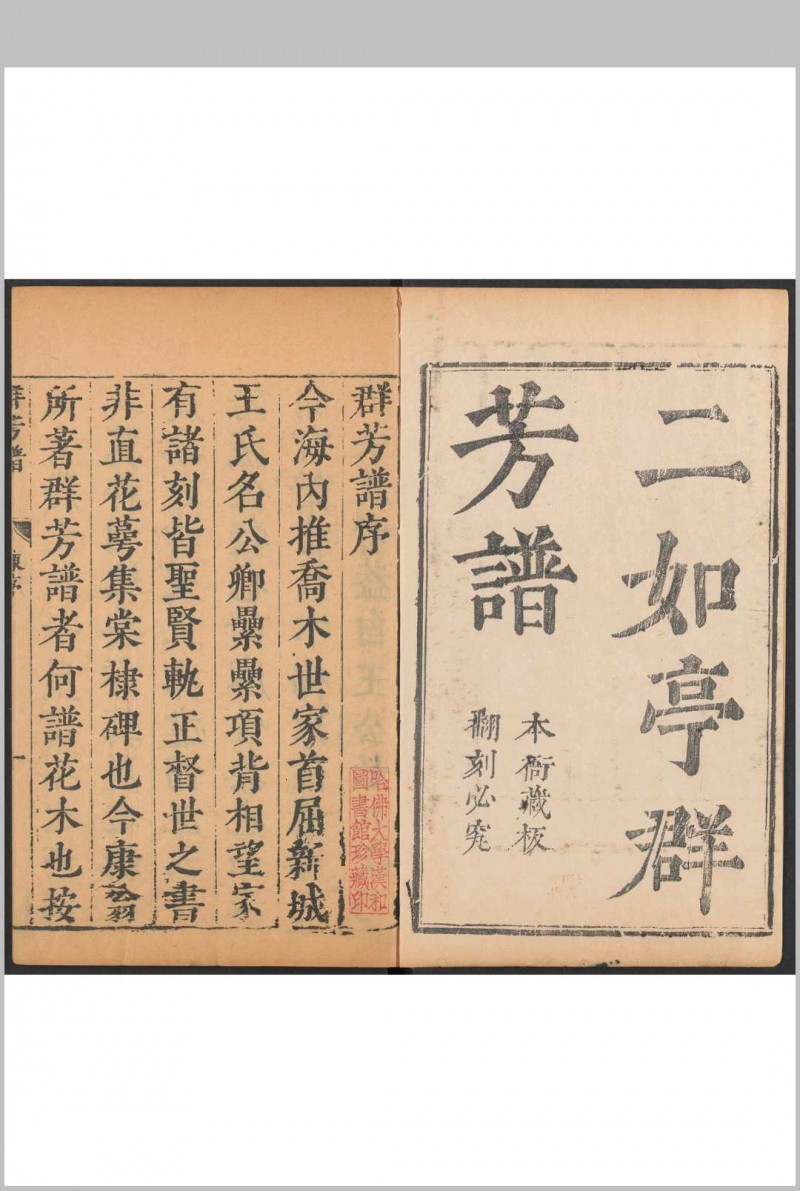 二如亭群
芳譜
本衙藏板
翻刻必究
群芳譜序
今海內推喬木世家首屈新城
王氏名公卿纍纍項背相望家
有諸刻皆聖賢軌正督世之書
非直花萼集棠棣碑也今康翁
所著群芳譜者何譜花木也按
群芳譜
一
哈佛大學漢和
圖書館珍藏印